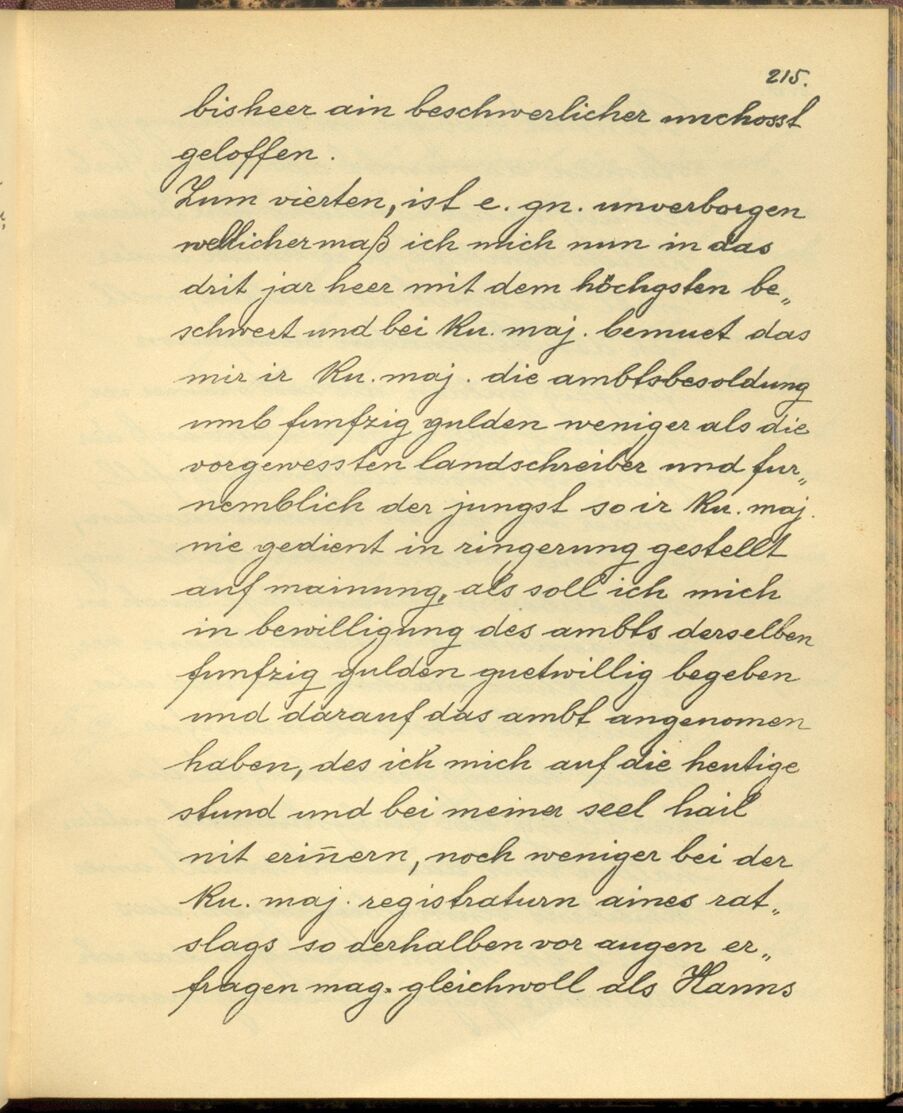 215.
bisheer ain beschwerlicher unchosst
geloffen.
Zum vierten, ist e. gn. unverborgen
wellichermaß ich mich nun in das
drit jar heer mit dem höchgsten be„
schwert und bei Ku. maj. bemuet das
mir ir Ku. maj. die ambtsbesoldung
umb funfzig gulden weniger als die
vorgewessten landschreiber und fur„
nemblich der jungst so ir Ku. maj.
nie gedient in ringerung gestellt
auf mainung, als soll ich mich
in bewilligung des ambts derselben
funfzig gulden guetwillig begeben
und darauf das ambt angenomen
haben, des ich mich auf die heutige
stund und bei meiner seel hail
nit erin̄ern, noch weniger bei der
Ku. maj. registraturn aines rat„
slags so derhalben vor augen er„
fragen mag. gleichwoll als Hanns